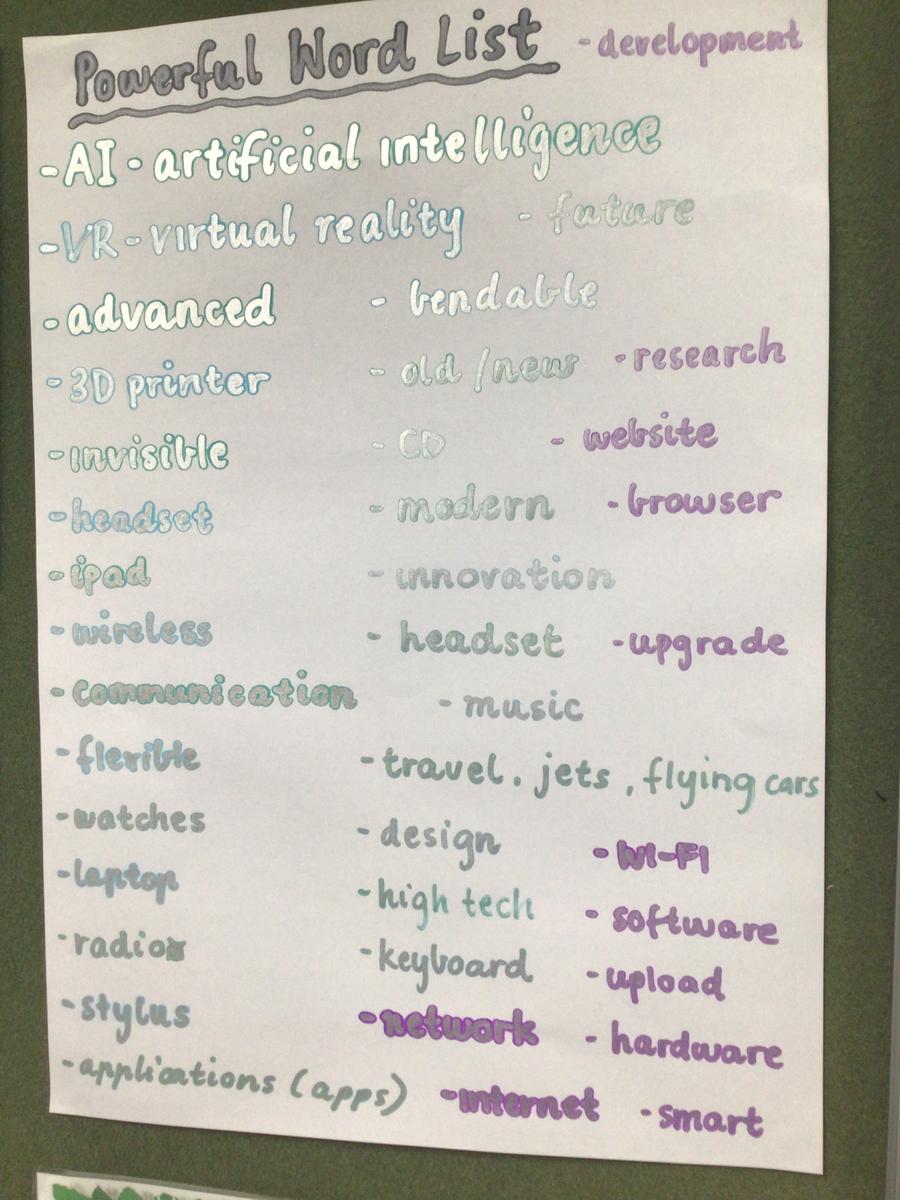 Powerful Word List - development
- AI - artificial intelligence
- VR - virtual reality - future
- advanced - bendable
- 3D printer - old / new - research
- invisible - CD - website
- headset - modern - browser
- ipad - innovation
- wireless - headset - upgrade
- communication - music
- flexible - travel. jets, flying cars
- watches - design - WI-FI
- laptop - high tech - software
- radio - keyboard - upload
- stylus - network - hardware
- applications (apps) - internet - smart